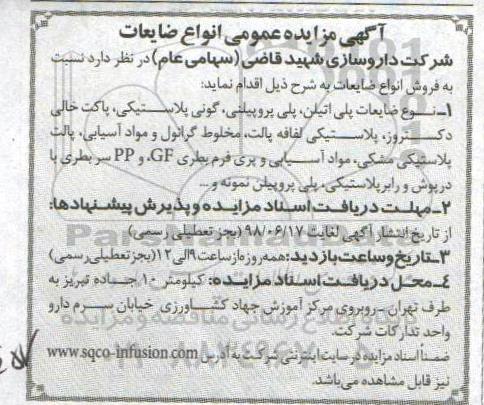 آگهی مزایده عمومی انواع ضایعات
شرکت داروسازی شهید قاضی (سهامی عام) در نظر دارد نسبت
به فروش انواع ضایعات به شرح ذیل اقدام نماید:
۱-نوع ضایعات پلی اتیلن، پلی پروپیلنی، گونی پلاستیکی، پاکت خالی
دکستروز، پلاستیکی لفافه پالت، مخلوط گرانول و مواد آسیابی، پالت
پلاستیکی مشکی، مواد آسیابی و پری فرم بطری GF، و PP سر بطری با
درپوش و رابر پلاستیکی، پلی پروپیلن نمونه و...
۲-مهلت دریافت اسناد مزایده و پذیرش پیشنهادها:
از تاریخ انتشار آگهی لغایت ۹۸/۰۶/۱۷ (بجز تعطیلی رسمی)
۳-تاریخ و ساعت بازدید: همه روزه از ساعت ۹ الی ۱۲ (بجز تعطیلی رسمی)
۴-محل دریافت اسناد مزایده: کیلومتر ۱۰ جاده تبریز به
طرف تهران - روبروی مرکز آموزش جهاد کشاورزی خیابان سرم دارو
واحد تدارکات شرکت.
ضمناً اسناد مزایده در سایت اینترنتی شرکت به آدرس www.sqco-infusion.com
نیز قابل مشاهده می‌باشد.